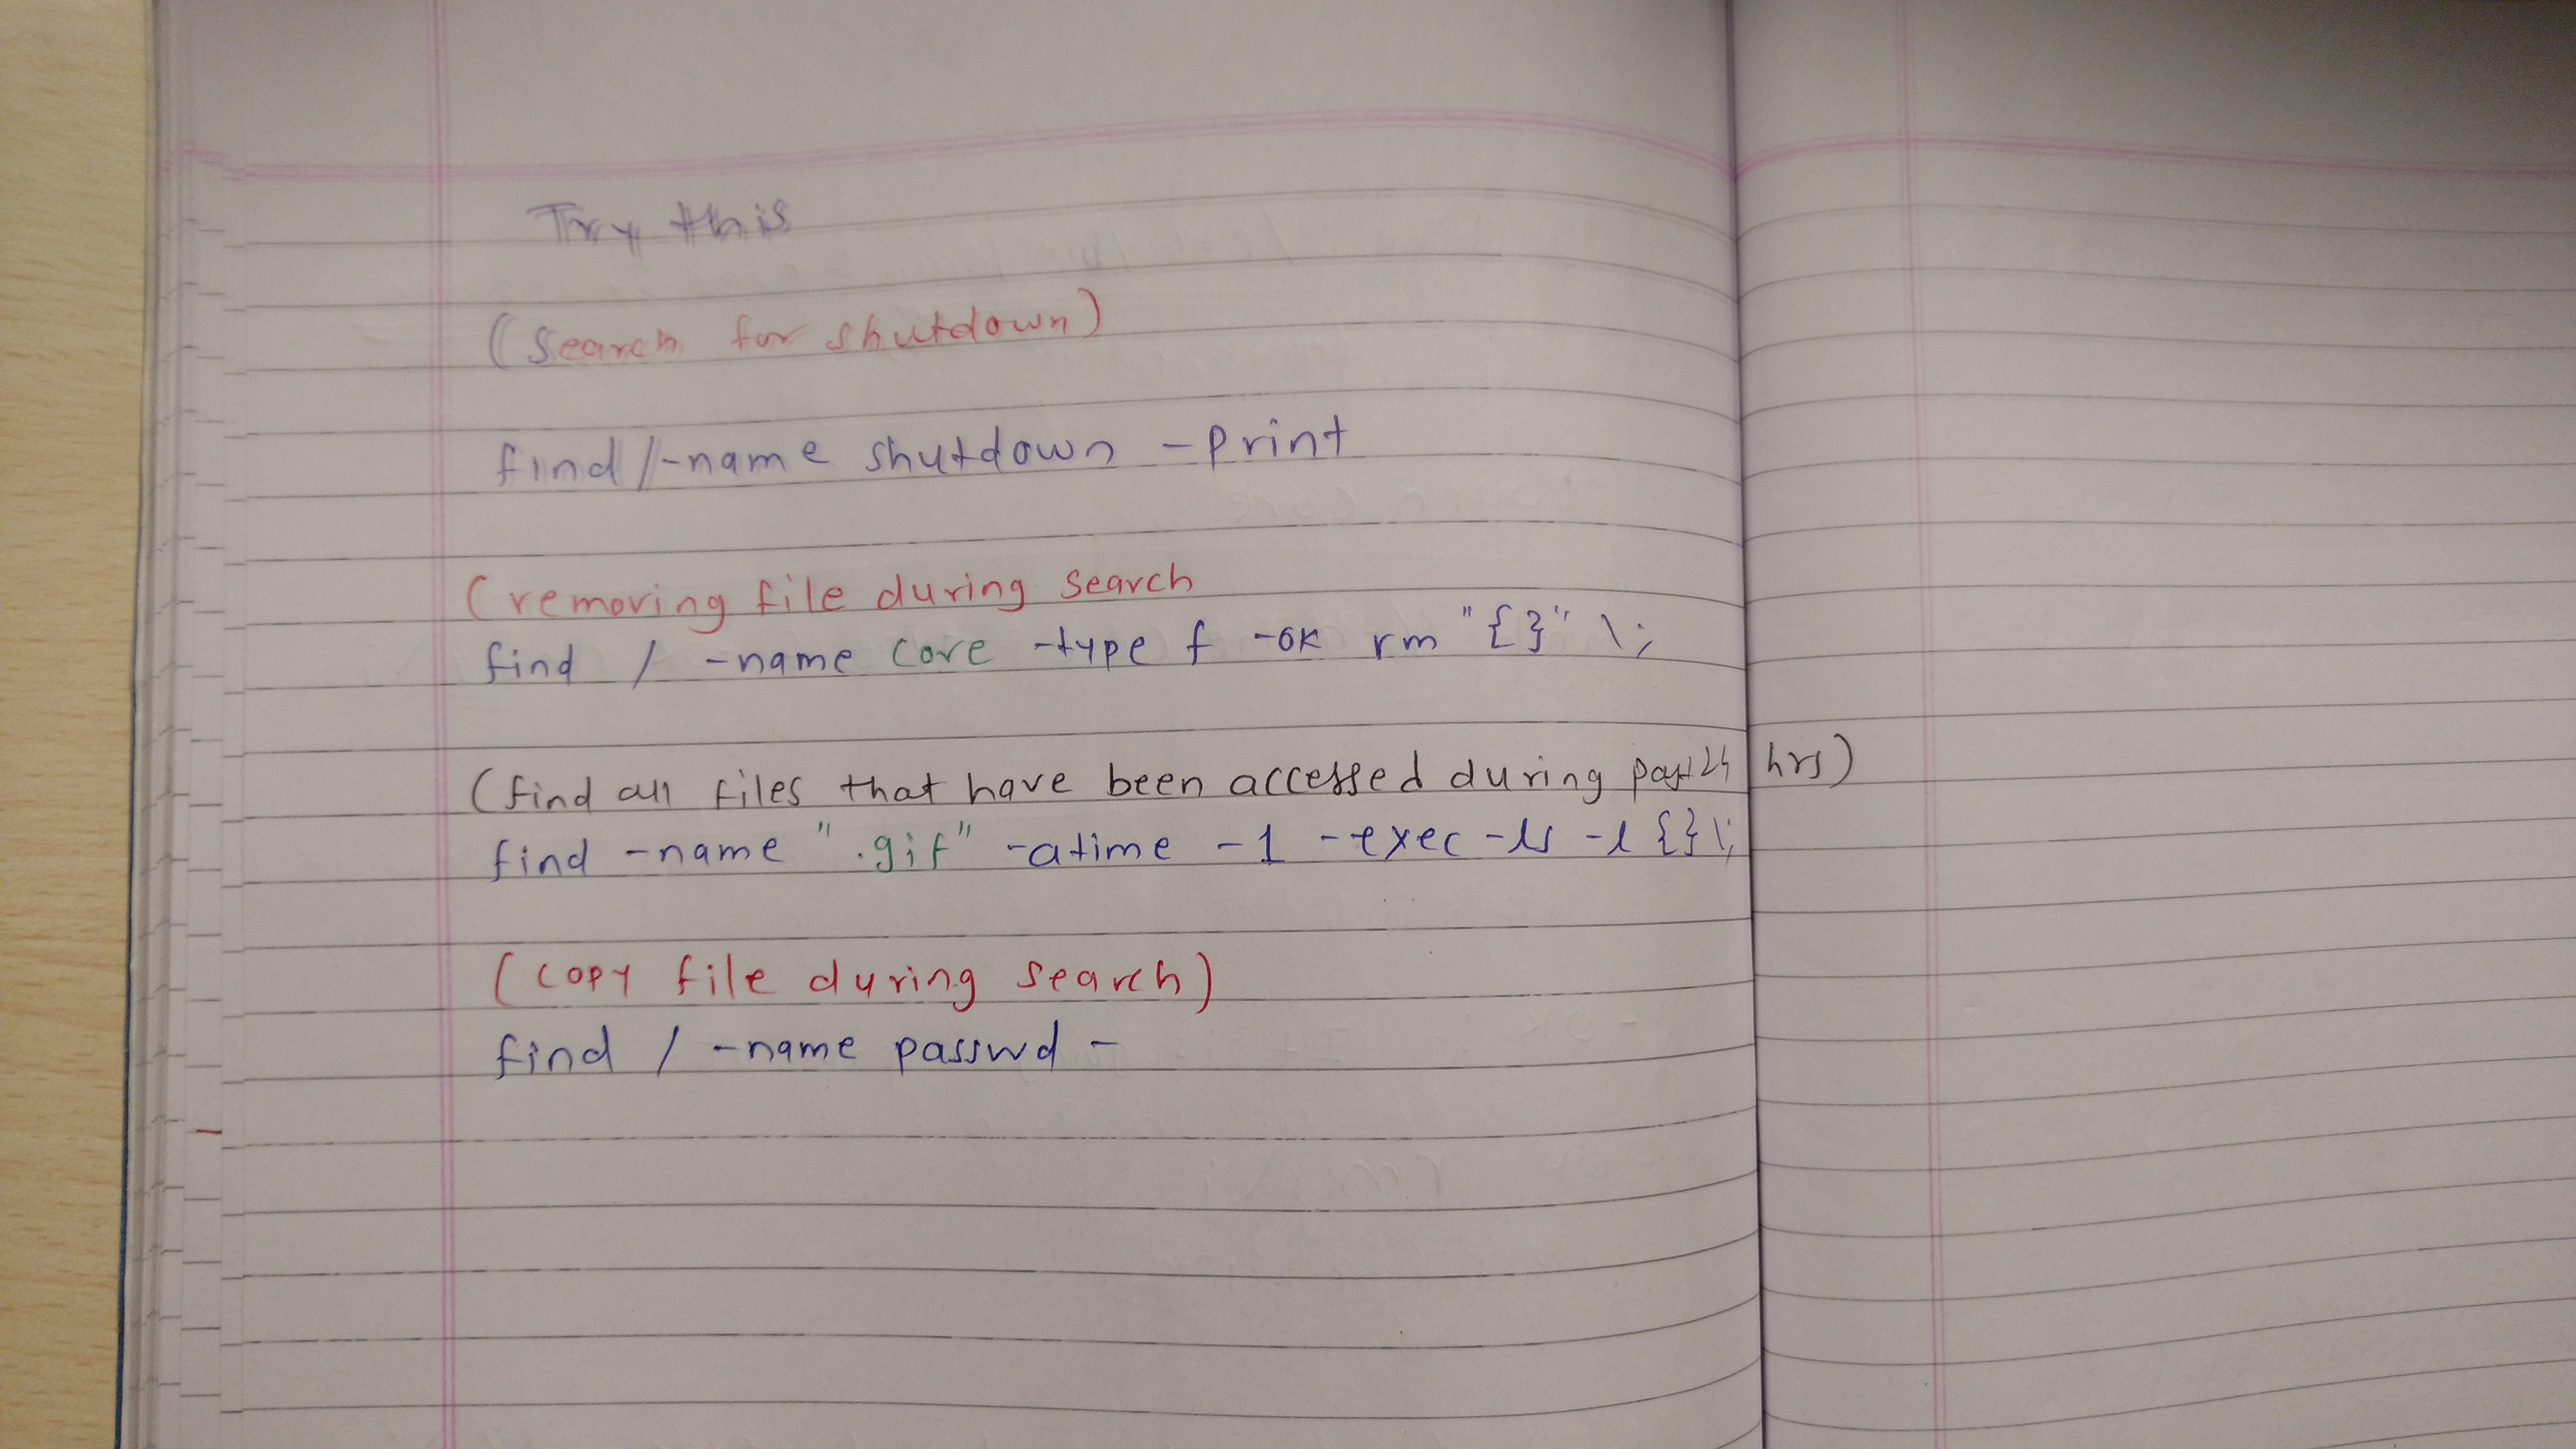 Try this
(Search for shutdown)
find /-name shutdown -print
(removing file during search
find / -name core -type f -ok rm "{}" \;
(find all files that have been accessed during past 24 hrs)
find -name ".gif" -atime -1 -exec -ls -l {} \;
(copy file during search)
find / -name passwd -